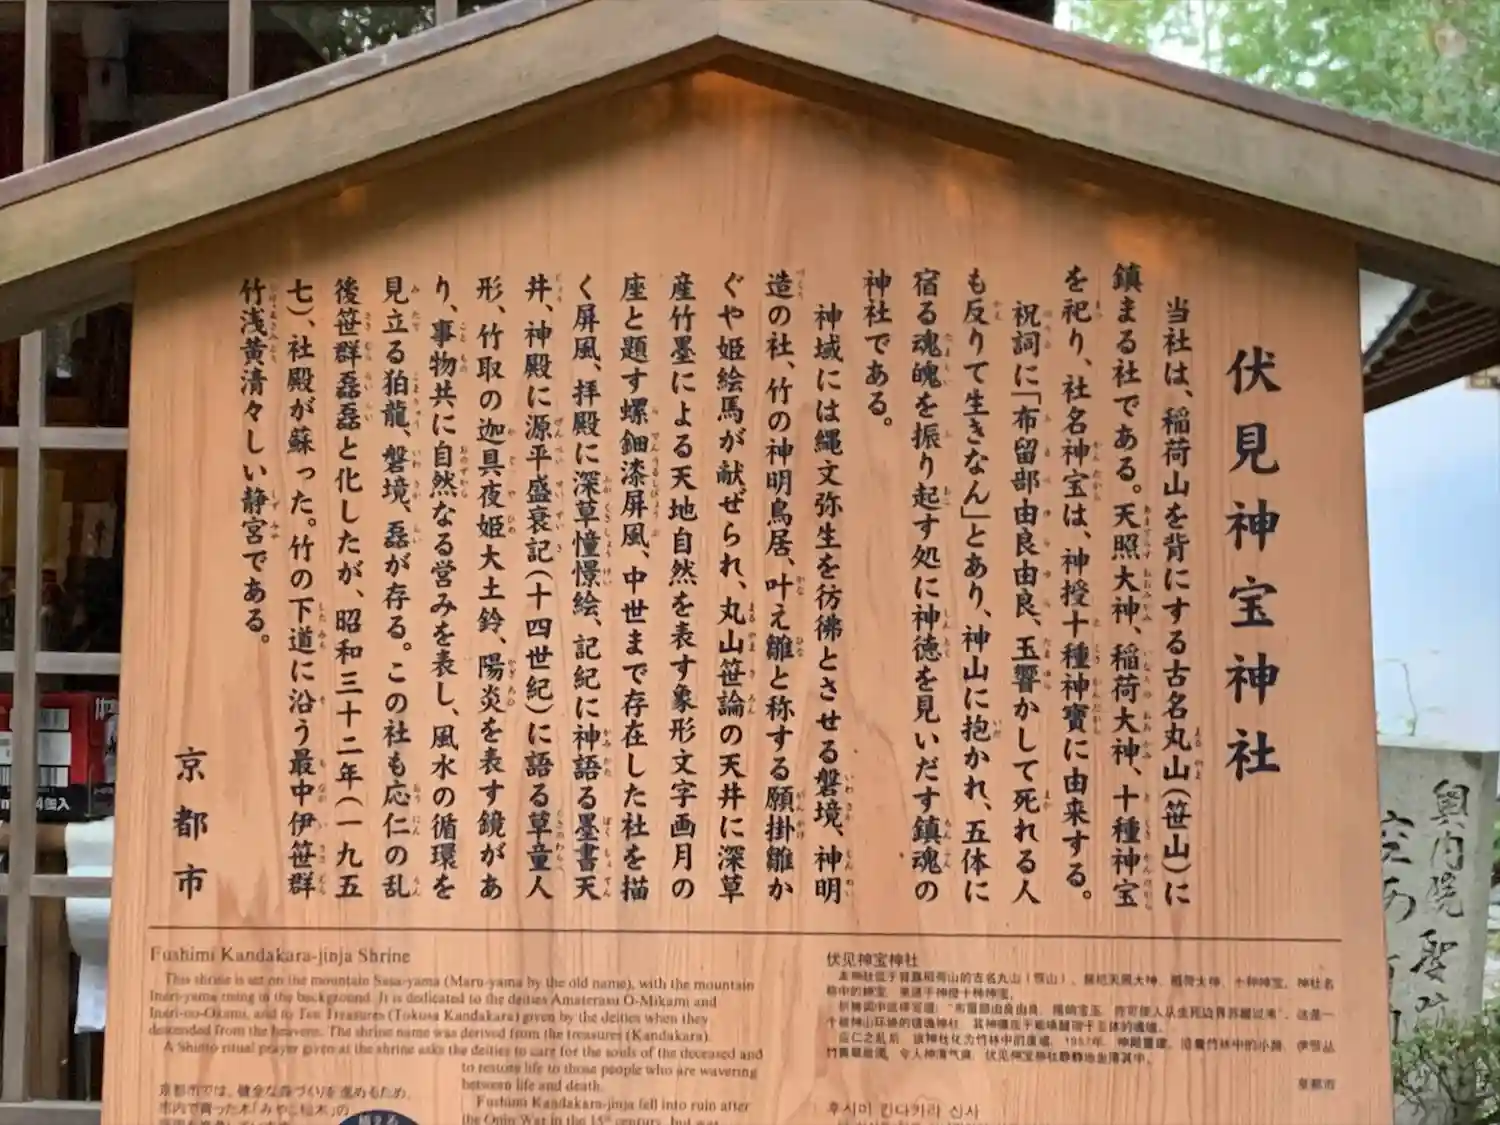 伏見神宝神社
当社は、稲荷山を背にする古名丸山(笹山)に
鎮まる社である。天照大神、稲荷大神、十種神宝
を祀り、社名神宝は、神授十種神寶に由来する。
祝詞に「布留部由良由良、玉響かして死れる人
も反りて生きなん」とあり、神山に抱かれ、五体に
宿る魂魄を振り起す処に神徳を見いだす鎮魂の
神社である。
神域には縄文弥生を彷彿とさせる磐境、神明
造の社、竹の神明鳥居、叶え雛と称する願掛雛か
ぐや姫絵馬が献ぜられ、丸山笹論の天井に深草
産竹墨による天地自然を表す象形文字画月の
座と題す螺鈿漆屏風、中世まで存在した社を描
く屏風、拝殿に深草憧憬絵、記紀に神語る墨書天
井、神殿に源平盛衰記(十四世紀)に語る草童人
形、竹取の迦具夜姫大土鈴、陽炎を表す鏡があ
り、事物共に自然なる営みを表し、風水の循環を
見立る狛龍、磐境、磊が存る。この社も応仁の乱
後笹群磊磊と化したが、昭和三十二年(一九五
七)、社殿が蘇った。竹の下道に沿う最中伊笹群
竹浅黄清々しい静宮である。
京都市
Fushimi Kandakara-jinja Shrine
This shrine is set on the mountain Sasa-yama (Maru-yama by the old name), with the mountain
Inari-yama rising in the background. It is dedicated to the deities Amaterasu O-Mikami and
Inari-no-Okami, and to Ten Treasures (Tokusa Kandakara) given by the deities when they
descended from the heavens. The shrine name was derived from the treasures (Kandakara).
A Shinto ritual prayer given at the shrine asks the deities to care for the souls of the deceased and
to restore life to those people who are wavering
between life and death.
Fushimi Kandakara-jinja fell into ruin after
the Onin War in the 15th century, but
京都市では、健全な森づくりを進めるため、
市内で育った木「みやこ杣木」の
伏见神宝神社
皇都市
후시미 칸다카라 신사
4個入
奥内院